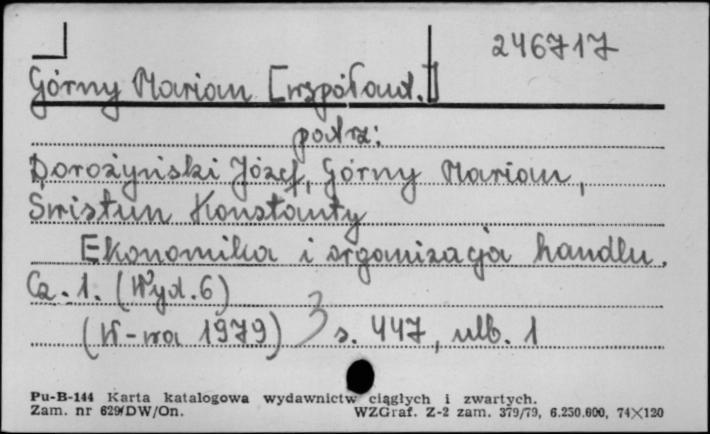 246717
Górny Marian [współaut.]
patrz:
Dorożyński Józef, Górny Marian,
Świstun Konstanty
Ekonomika i organizacja handlu.
Cz. 1. (Wyd. 6)
(W-wa 1979) s. 447, nlb. 1
Pu-B-144 Karta katalogowa wydawnictw ciągłych i zwartych.
Zam. nr 629/DW/On. WZGraf. Z-2 zam. 379/79, 6.250.600, 74×120